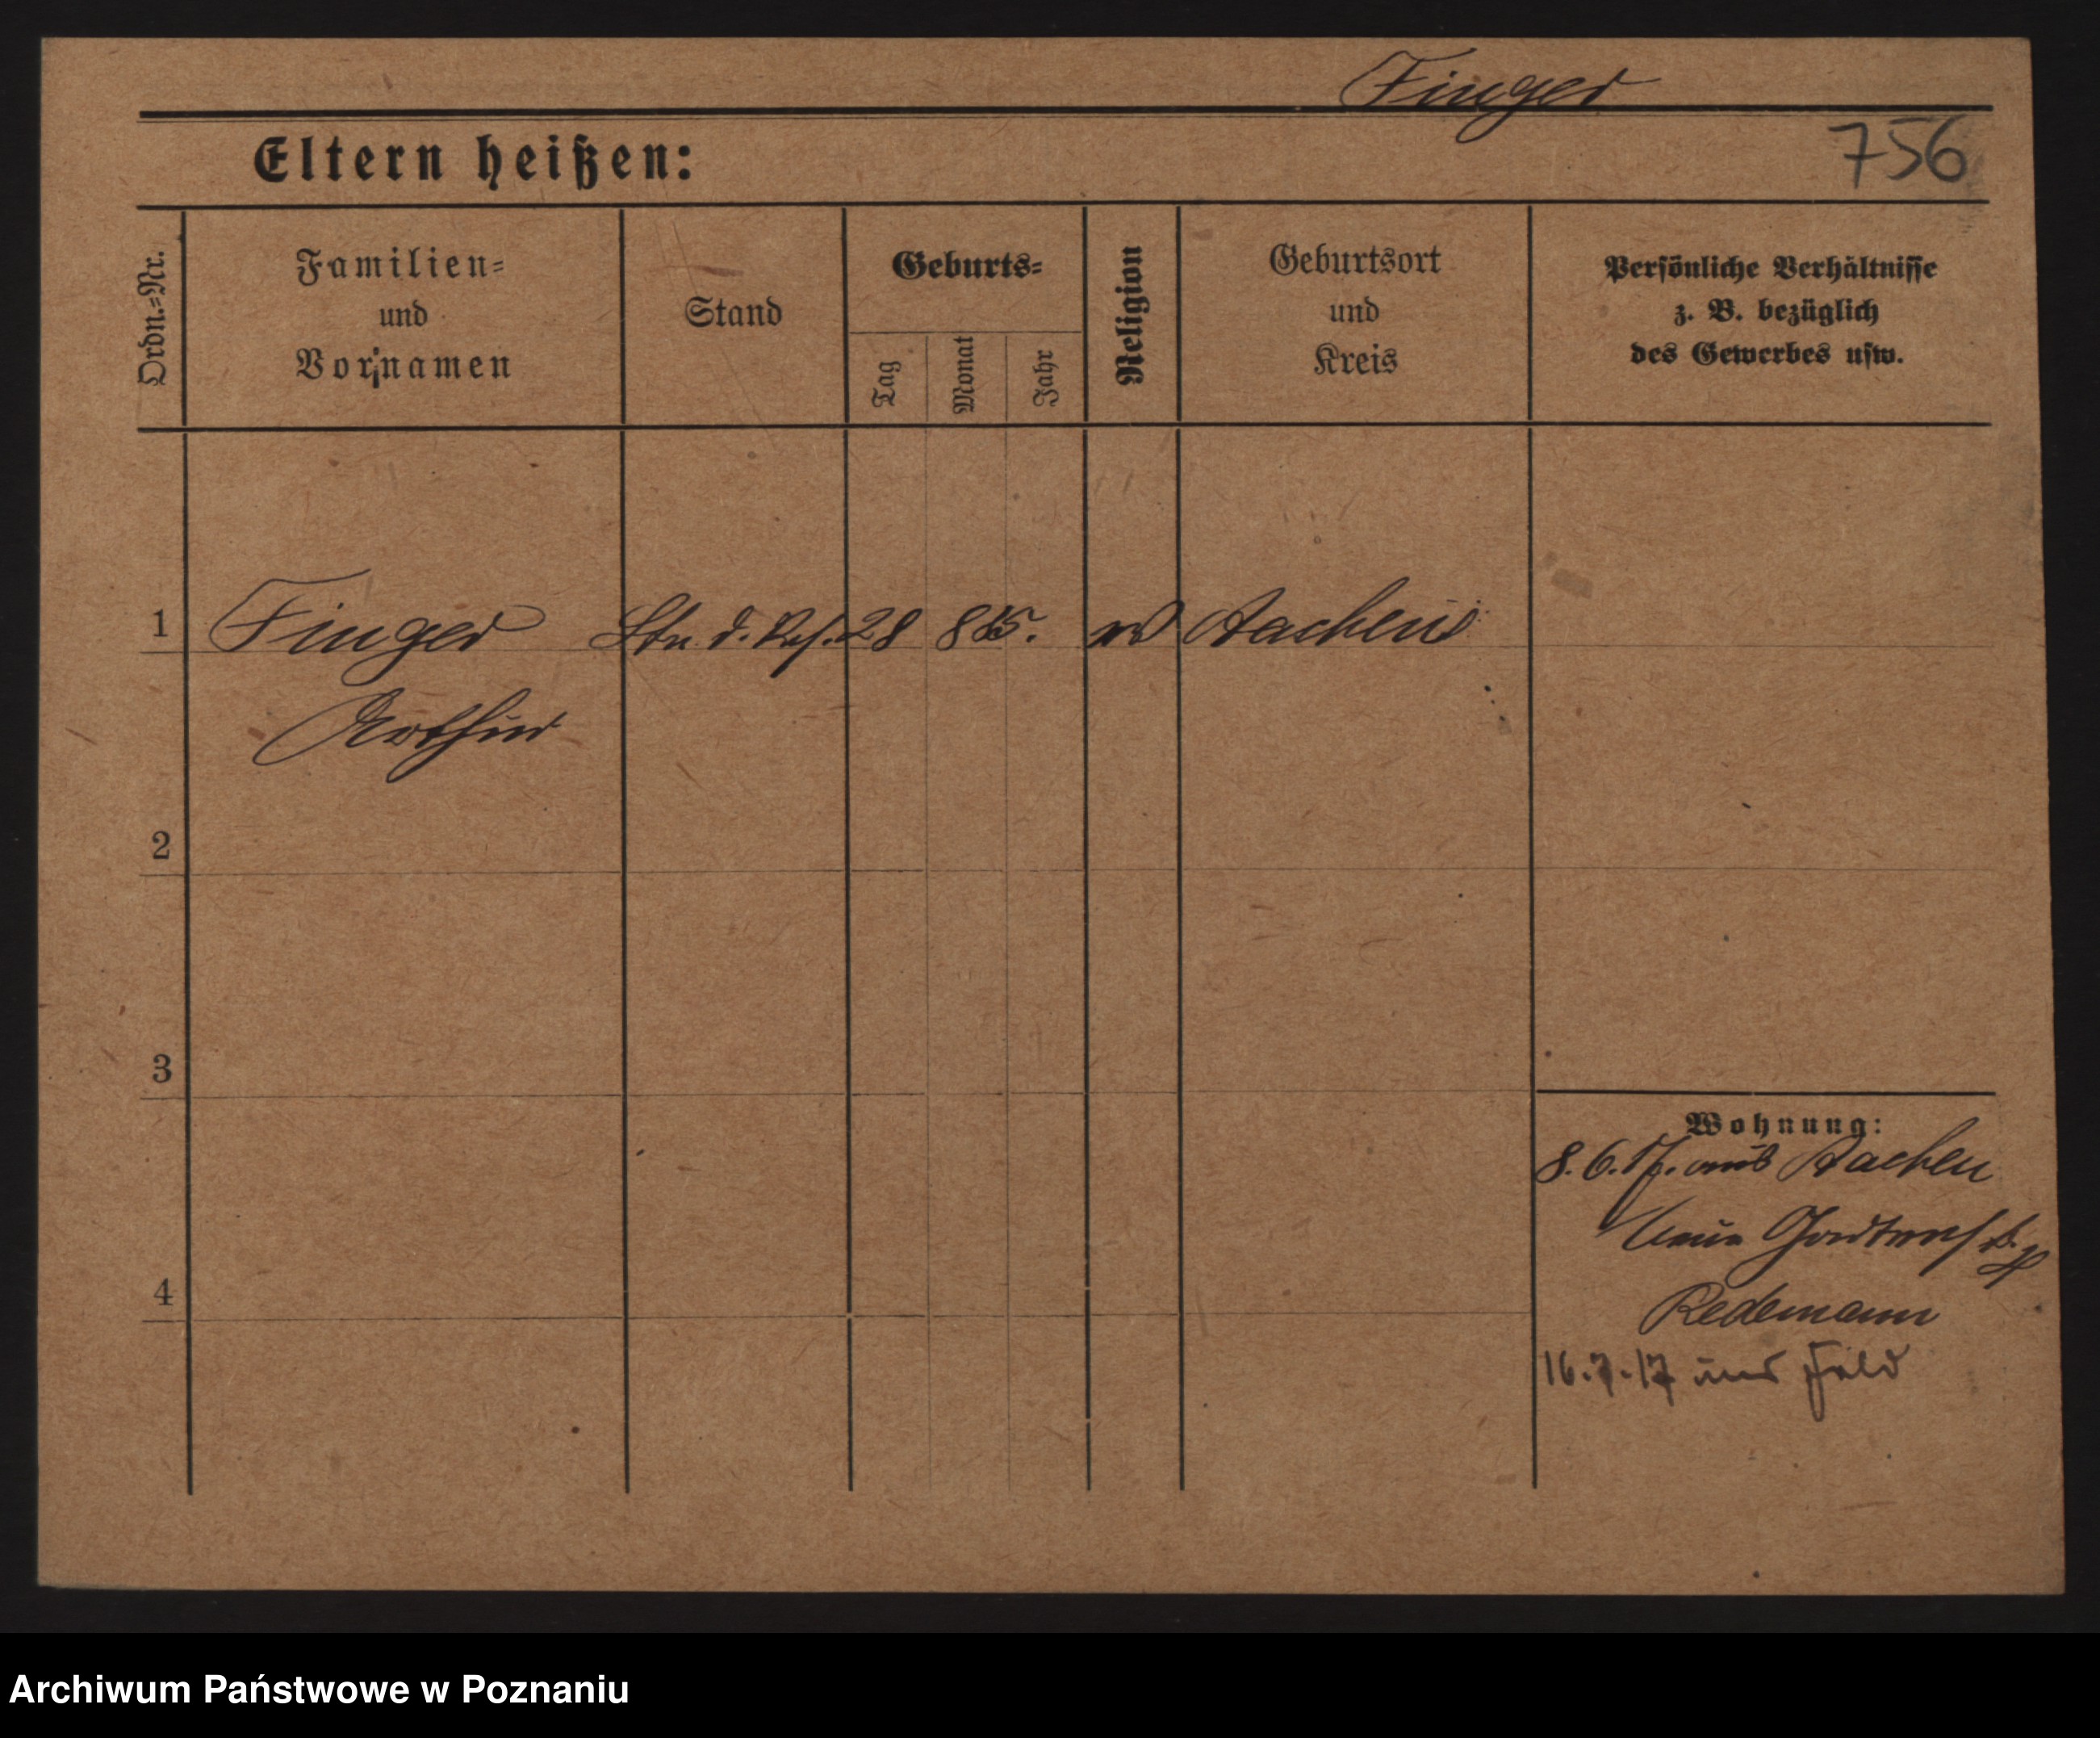 Finger
756
Eltern heißen:
Ordn.=Nr.
Familien=
und
Vornamen
Stand
Geburts=
Tag
Monat
Jahr
Religion
Geburtsort
und
Kreis
Persönliche Verhältnisse
z. B. bezüglich
des Gewerbes usw.
1 Finger Ltn. d. Res. 28 8 85. Aachen
Arthur
2
3
4
Wohnung:
8.6.17. aus Aachen
Neue
Redemann
16.7.17 ins Feld
Archiwum Państwowe w Poznaniu